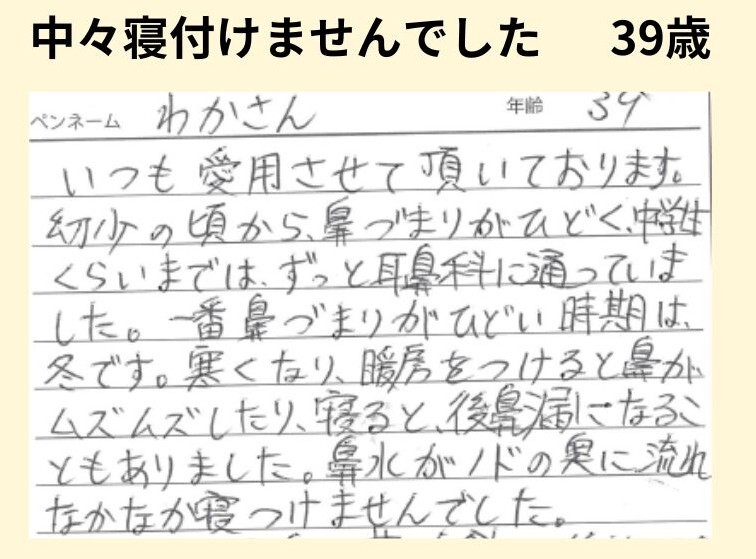 中々寝付けませんでした 39歳
ペンネーム わかさん 年齢 39
いつも愛用させて頂いております。
幼少の頃から、鼻づまりがひどく、中学生
くらいまでは、ずっと耳鼻科に通っていま
した。一番鼻づまりがひどい時期は、
冬です。寒くなり、暖房をつけると鼻が
ムズムズしたり、寝ると、後鼻漏になるこ
ともありました。鼻水がノドの奥に流れ
なかなか寝つけませんでした。